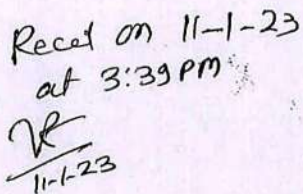 Recd on 11-1-23
at 3:39 PM
11-1-23